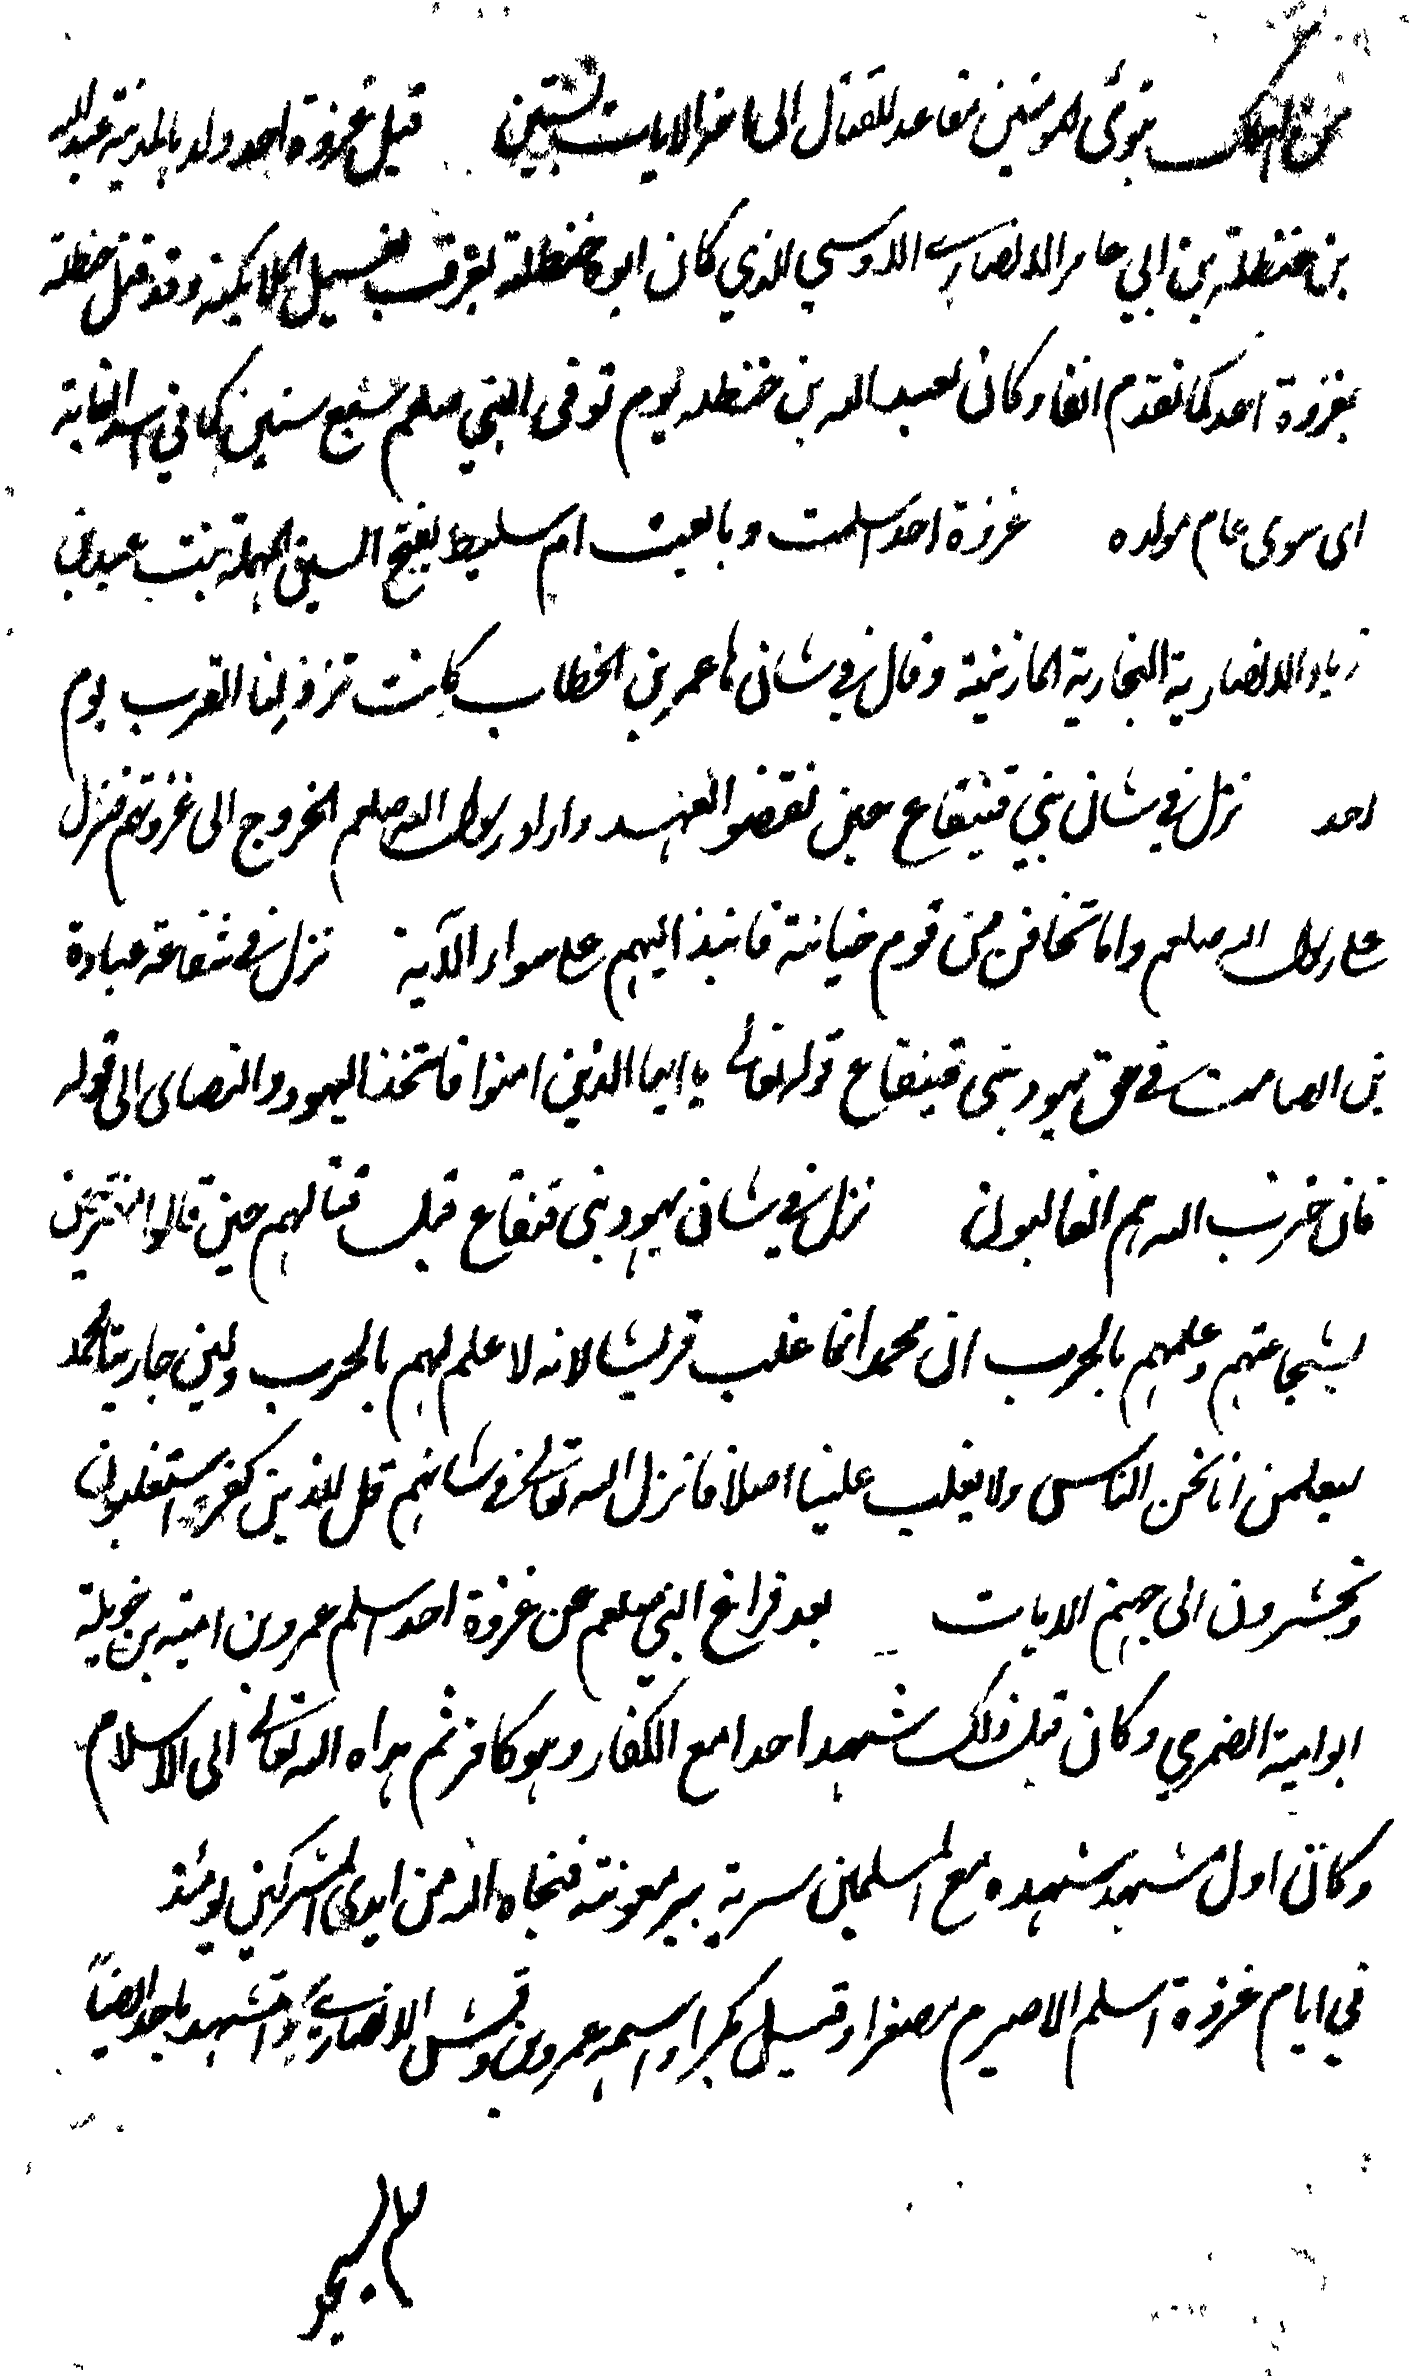 من اهلك تبوئ المؤمنين مقاعد للقتال الى اخر الايات الستين قبل غزوة احد ولد بالمدينة عبد الله
بن حنظلة بن ابي عامر الانصاري الاوسي الذي كان ابوه حنظلة يعرف بغسيل الملائكة وقد قتل حنظلة
بغزوة احد كما تقدم انفا وكان لعبد الله بن حنظله يوم توفى النبي صلعم سبع سنين كما في اسد الغابة
اى سوى عام مولده غزوة احد اسلمت وبايعت ام سليط بفتح السين المهملة بنت عبيد بن
زياد الانصارية النجارية المازنية وقال في شانها عمر بن الخطاب كانت تزفر لنا القرب يوم
احد نزل في شان بني قينقاع حين نقضوا العهد واراد رسول الله صلعم الخروج الى غزوتهم فنزل
على رسول الله صلعم واما تخافن من قوم خيانة فانبذ اليهم على سواء الآية نزل في شفاعة عبادة
بن الصامت في حق يهود بنى قينقاع قوله تعالى يا ايها الذين امنوا لا تتخذ اليهود والنصارى الى قوله
فان حزب الله هم الغالبون نزل في شان يهود بنى قينقاع قبل قتالهم حين قالوا مفتخرين
بشجاعتهم وعلمهم بالحرب ان محمدا انما غلب قريشا لانه لا علم لهم بالحرب ولئن حاربنا محمد
ليعلمن انا نحن الناس ولا يغلب علينا اصلا فانزل الله تعالى في شانهم قل للذين كفروا ستغلبون
وتحشرون الى جهنم الايات بعد فراغ النبي صلعم عن غزوة احد اسلم عمرو بن امية بن خويلة
ابو امية الضمري وكان قبل ذلك شهد احدا مع الكفار وهو كافر ثم هداه الله تعالى الى الاسلام
وكان اول مشهد شهده مع المسلمين سرية بير معونة فنجاه الله من ايدى المشركين يومئذ
في ايام غزوة اسلم الاصيرم مصغرا وقيل مكبرا واسمه عمرو بن وقش الانصاري واستشهد باحد ايضاً